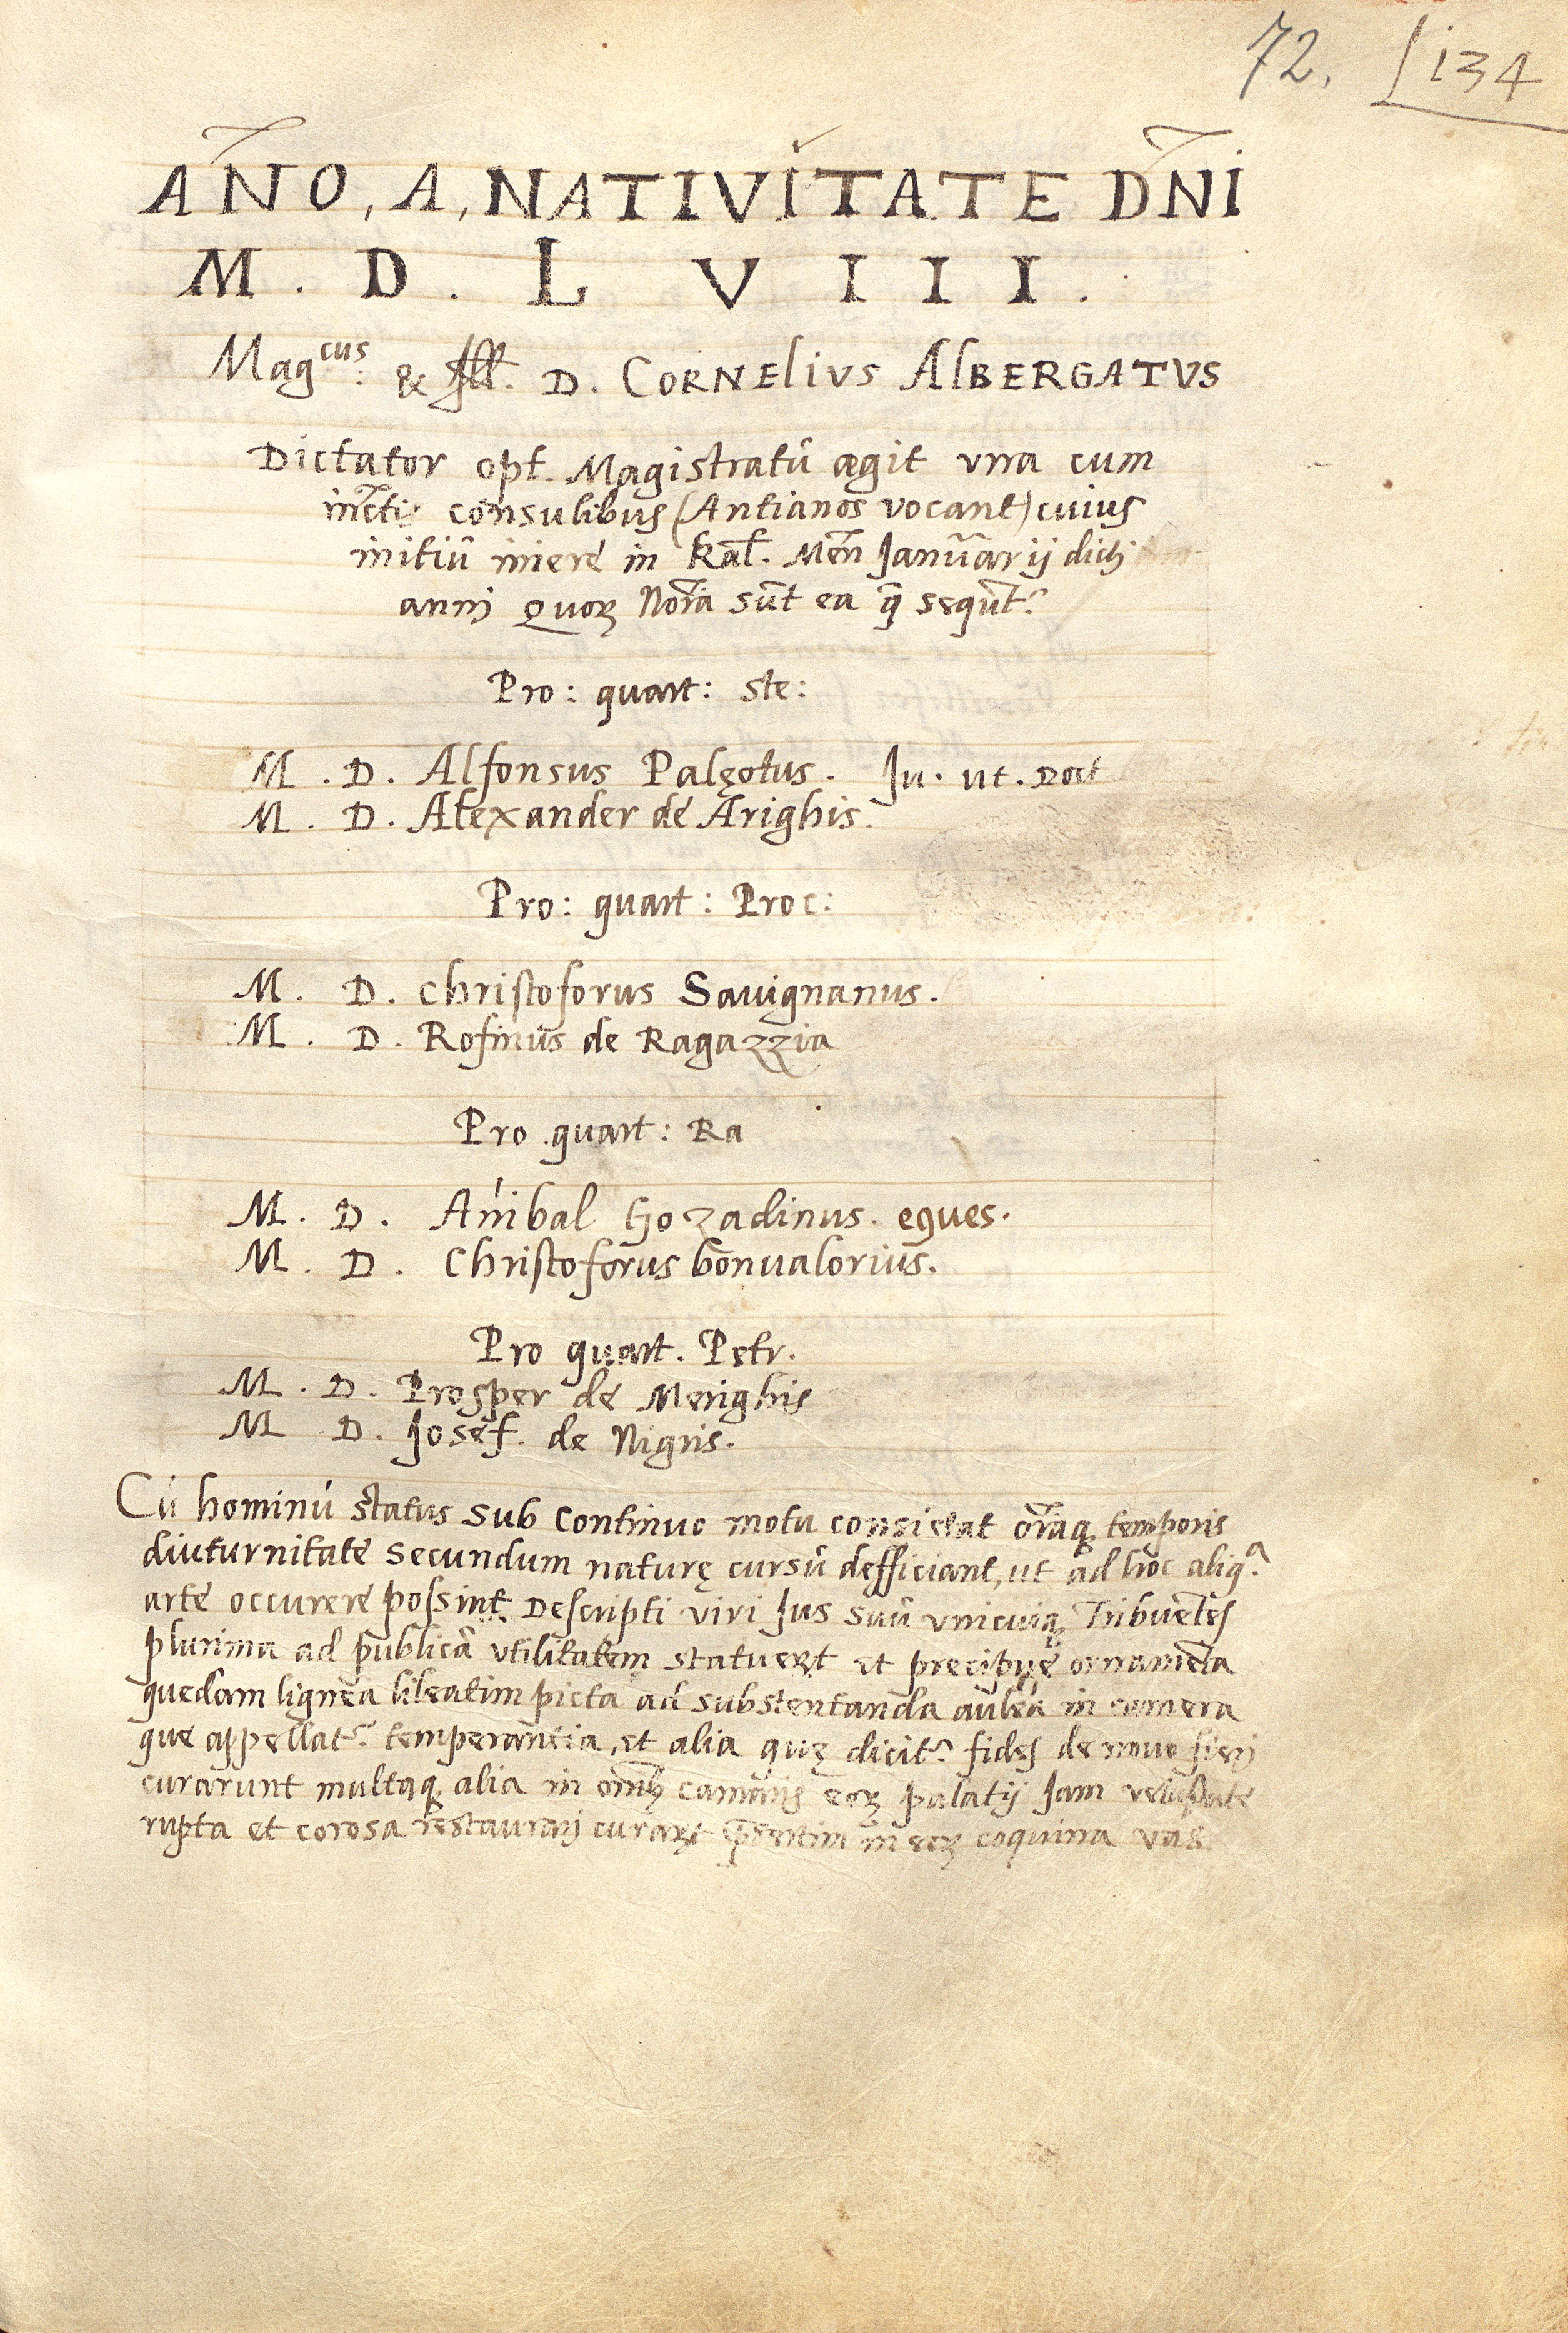 72. 134
AÑO, A, NATIVITATE DÑI
M. D. L V I I I.
Mag.cus & Ill. D. CORNElIVS AlBERGATVS
Dictator opt. Magistratū ægit vna cum
consulibus (Antianos vocant) cuius
initiū iniere in Kal. Men̄ Janūarij dicti
annj Quoꝝ Nōīa sūt ea q̄ sequt̄ᵣ
Pro: quart: Ste:
M. D. Alfonsus Palęotus. Ju. ut. Doct
M. D. Alexander de Arighis.
Pro: quart: Proc:
M. D. Christoforus Sauignanus.
M. D. Rofinus de Ragazzia
Pro quart: Ra
M. D. Añibal Gozadinus. eques.
M. D. Christoforus bonualorius.
Pro quart. Petr.
M. D. Prosper de Merighis
M D. Josef. de Nigris.
Cū hominū status sub Continuo motu consistat oīaqꝫ temporis
diuturnitate secundum naturę cursū defficiant, ut ad hoc aliq.ᵃ
arte occurere possint Descripti viri Jus suū vnicuiqꝫ Tribuētes
plurima ad publicā vtilitatem statuert et precipue ornamēta
quedam lignea lileatim picta ad substentanda aulea in camera
que appellatᵣ temperantia, et alia quę dicitᵣ fides de nouo fierj
curarunt multaqꝫ alia in om̄ibꝫ cameris eoꝝ palatij Jam vetustate
rupta et corosa restaurarj curart in eoꝝ coquina vas